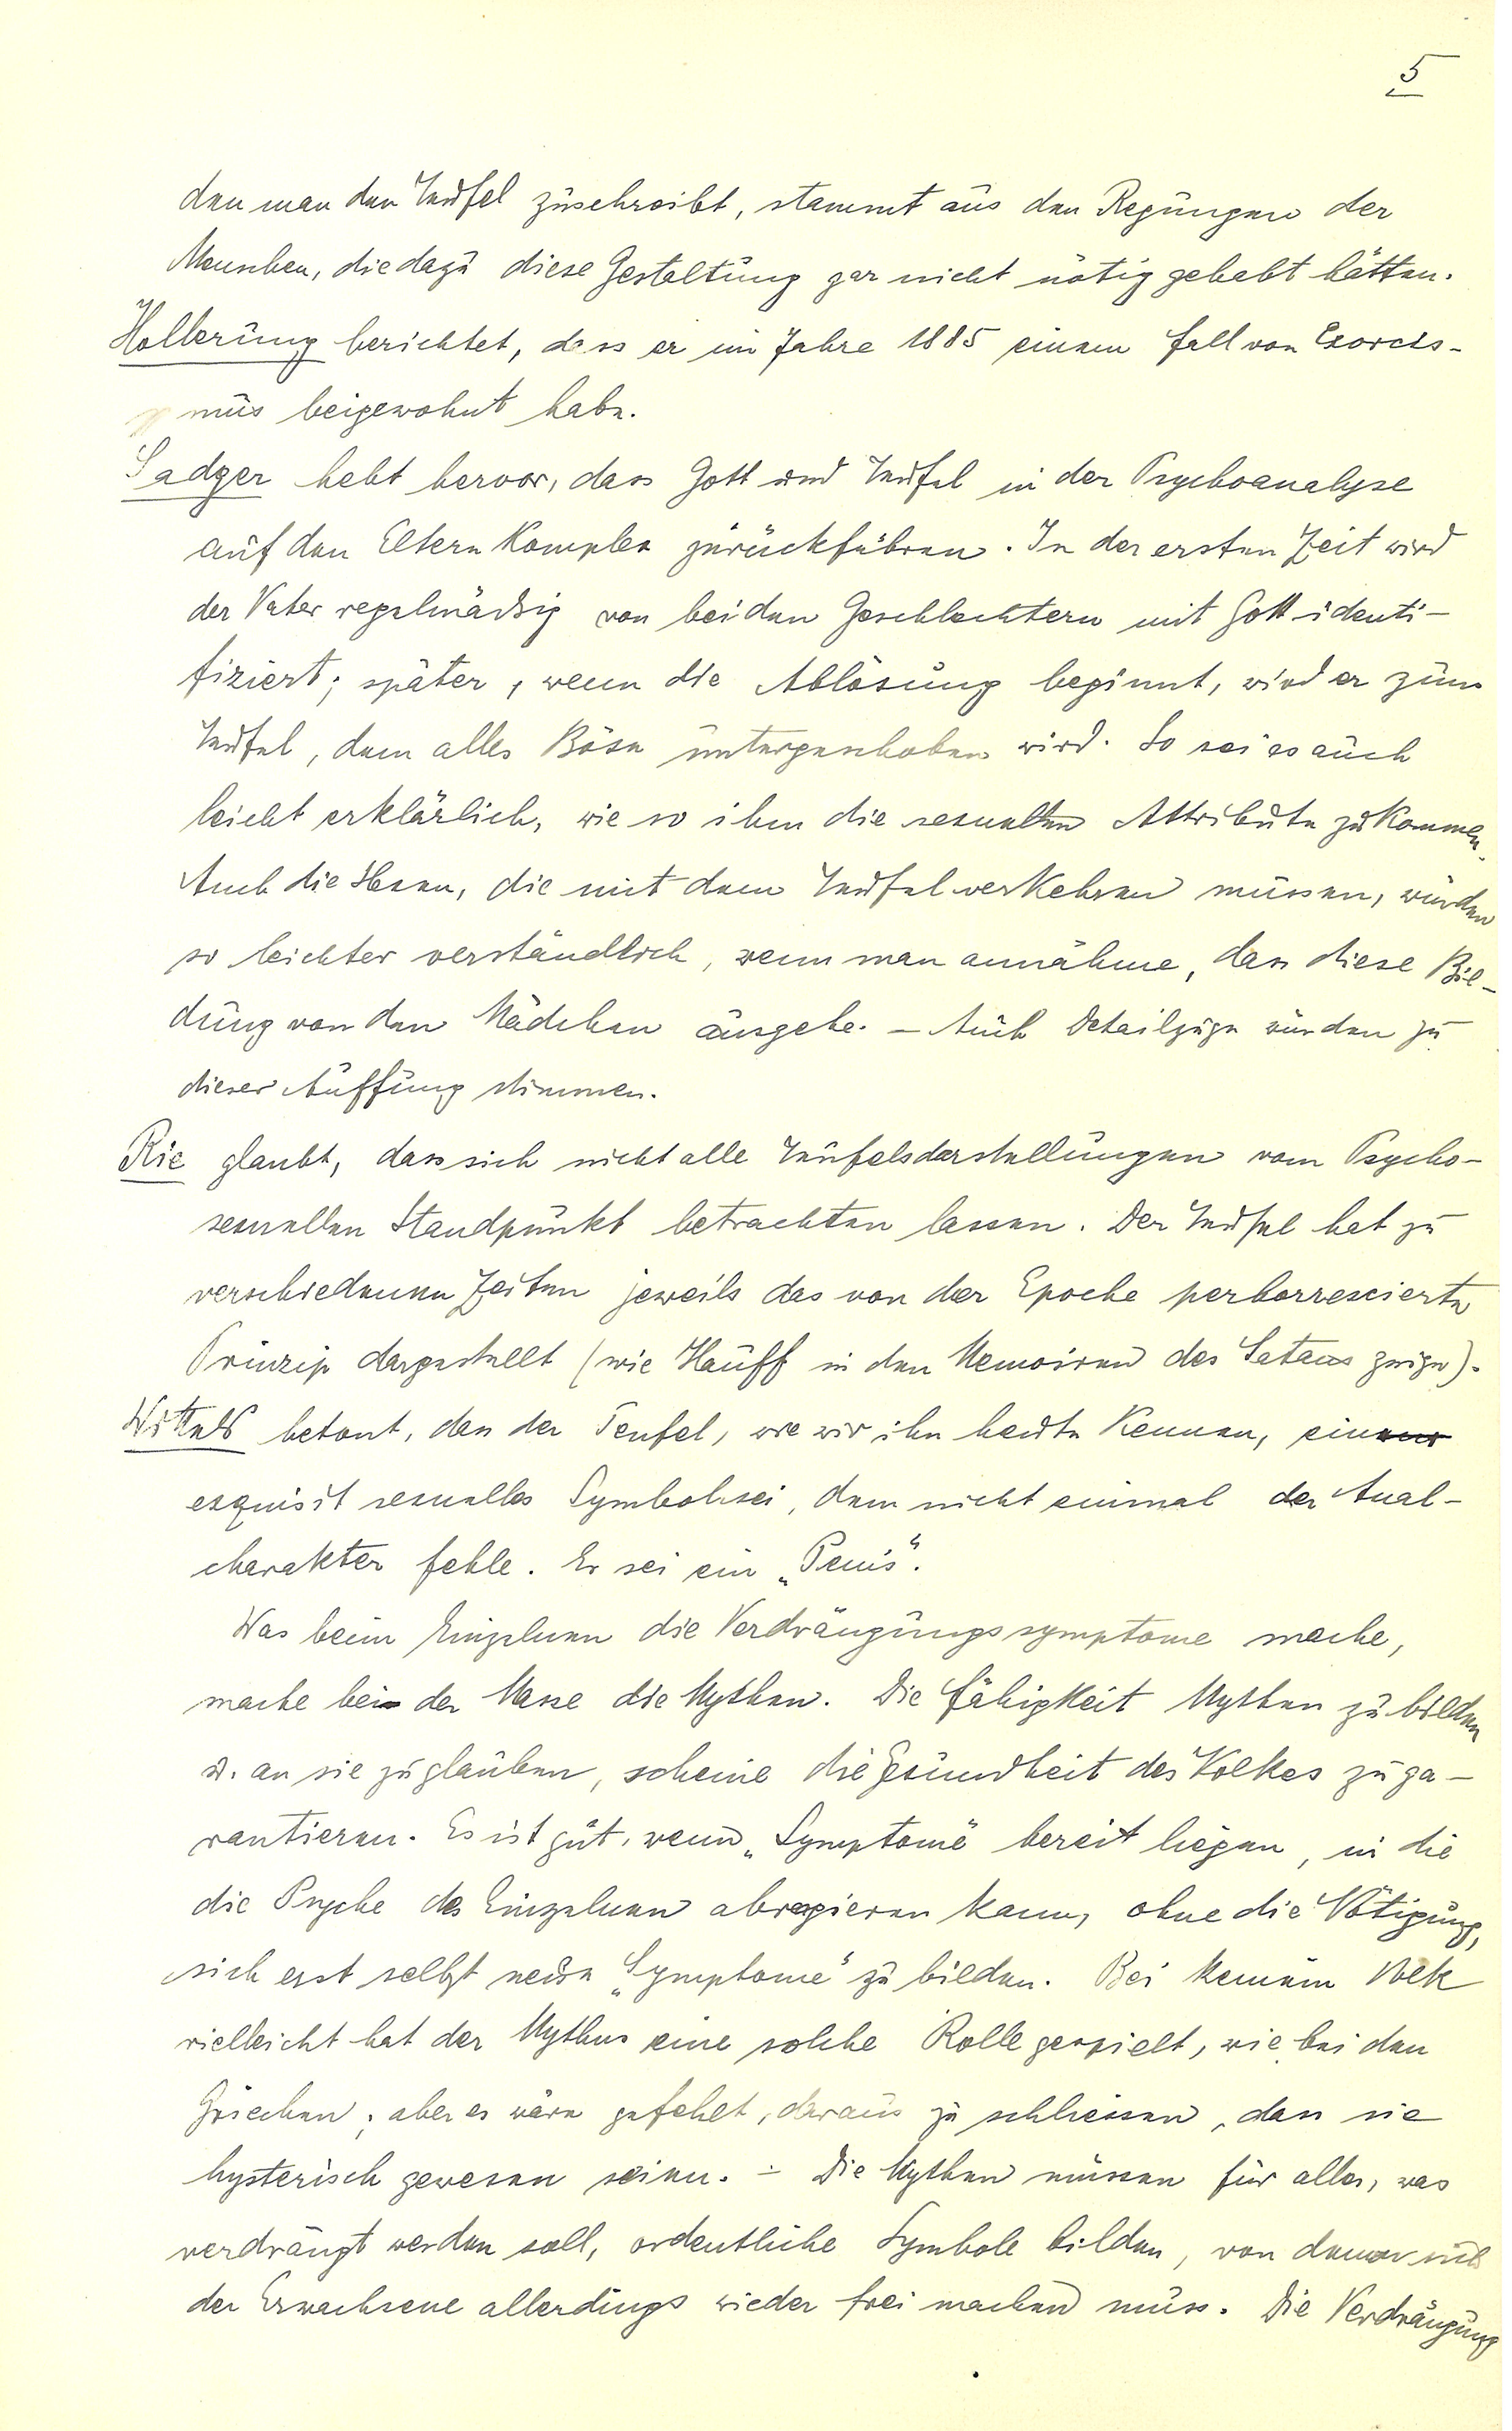 5
den man den Teufel zuschreibt, stammt aus den Regungen der
Menschen, die dazu diese Gestaltung gar nicht nötig gehabt hätten.
Hollerung berichtet, dass er im Jahre 1885 einem Fall von Exorcis-
mus beigewohnt habe.
Sadger hebt hervor, dass Gott und Teufel in der Psychoanalyse
auf den Elternkomplex zurückführen. In der ersten Zeit wird
der Vater regelmäßig von beiden Geschlechtern mit Gott identi-
fiziert; später, wenn die Ablösung beginnt, wird er zum
Teufel, dem alles Böse untergeschoben wird. So sei es auch
leicht erklärlich, wie so ihm die sexuellen Attribute zukommen.
Auch die Hexen, die mit dem Teufel verkehren müssen, würden
so leichter verständlich, wenn man annähme, dass diese Bil-
dung von den Mädchen ausgehe. – Auch Detailzüge würden zu
dieser Auffung stimmen.
Rie glaubt, dass sich nicht alle Teufelsdarstellungen vom Psycho-
sexuellen Standpunkt betrachten lassen. Der Teufel hat zu
verschiedenen Zeiten jeweils das von der Epoche perhorrescierte
Prinzip dargestellt (wie Hauff in den Memoiren des Satans zeige).
Wittels betont, dass der Teufel, wie wir ihn heute kennen, ein
exquisit sexuelles Symbol sei, dem nicht einmal der Anal-
charakter fehle. Er sei ein „Penis“.
Was beim Einzelnen die Verdrängungssymptome mache,
mache bei der Masse die Mythen. Die Fähigkeit Mythen zu bilden
u. an sie zu glauben, scheine die Gesundheit des Volkes zu ga-
rantieren. Es ist gut, wenn „Symptome“ bereit liegen, in die
die Psyche des Einzelnen abreagieren kann, ohne die Nötigung,
sich erst selbst neue „Symptome“ zu bilden. Bei keinem Volk
vielleicht hat der Mythus eine solche Rolle gespielt, wie bei den
Griechen; aber es wäre gefehlt, daraus zu schliessen, dass sie
hysterisch gewesen seien. – Die Mythen müssen für alles, was
verdrängt werden soll, ordentliche Symbole bilden, von denen sich
der Erwachsene allerdings wieder frei machen muss. Die Verdrängung